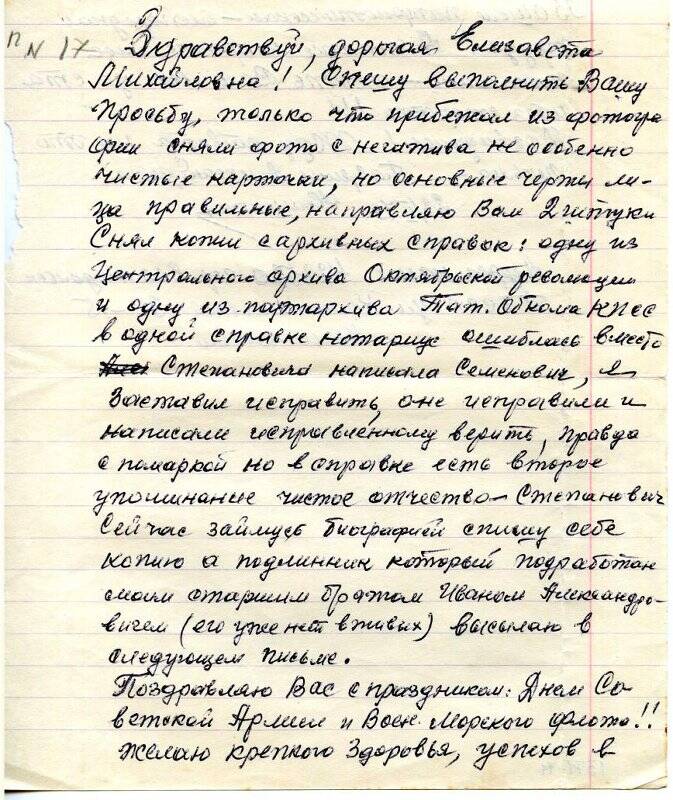 п N 17
Здравствуй, дорогая Елизавета
Михайловна! Спешу выполнить Вашу
просьбу, только что прибежал из фотогра
фии сняли фото с негатива не особенно
чистые карточки, но основные черты ли-
ца правильные, направляю Вам 2 штуки
Снял копии с архивных справок: одну из
Центрального архива Октябрьской революции
и одну из партархива Тат. Обкома КПСС
в одной справке нотариус ошиблась вместо
Степановича написала Семенович, я
заставил исправить, они исправили и
написали исправленному верить, правда
с помаркой но в справке есть второе
упоминание чистое отчество – Степанович
Сейчас займусь биографией спишу себе
копию а подлинник который подработан
моим старшим братом Иваном Александро-
вичем (его уже нет в живых) высылаю в
следующем письме.
Поздравляю Вас с праздником: Днем Со
ветской Армии и Воен-Морского флота!!
желаю крепкого здоровья, успехов в